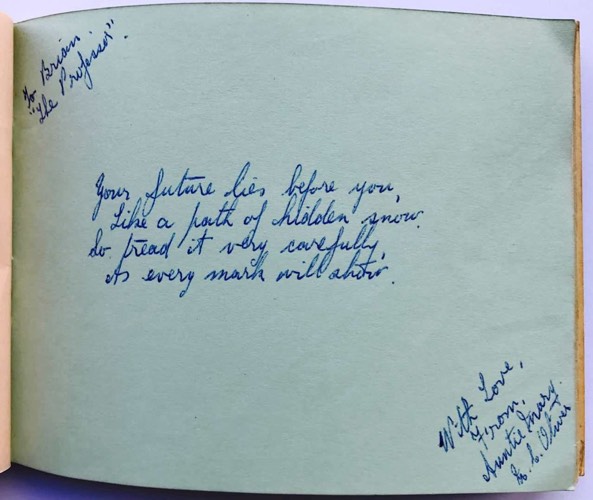 To Brian.
"The Professor".
Your future lies before you,
Like a path of hidden snow.
So tread it very carefully,
As every mark will show.
With Love,
From,
Auntie Mary.
M. L. Oliver